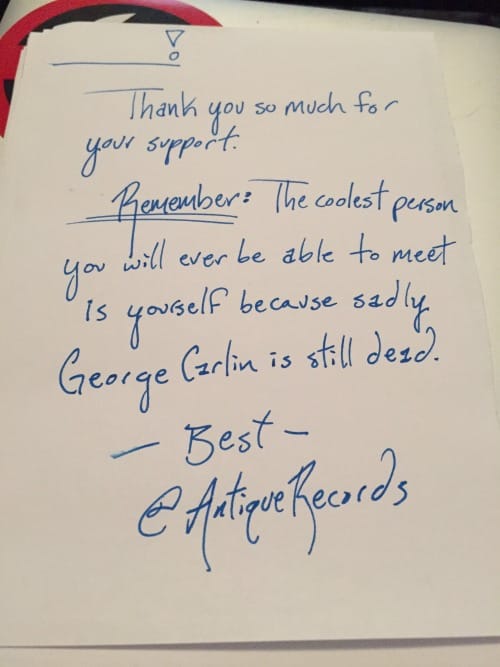 !
Thank you so much for
your support.
Remember: The coolest person
you will ever be able to meet
is yourself because sadly
George Carlin is still dead.
- Best -
@AntiqueRecords